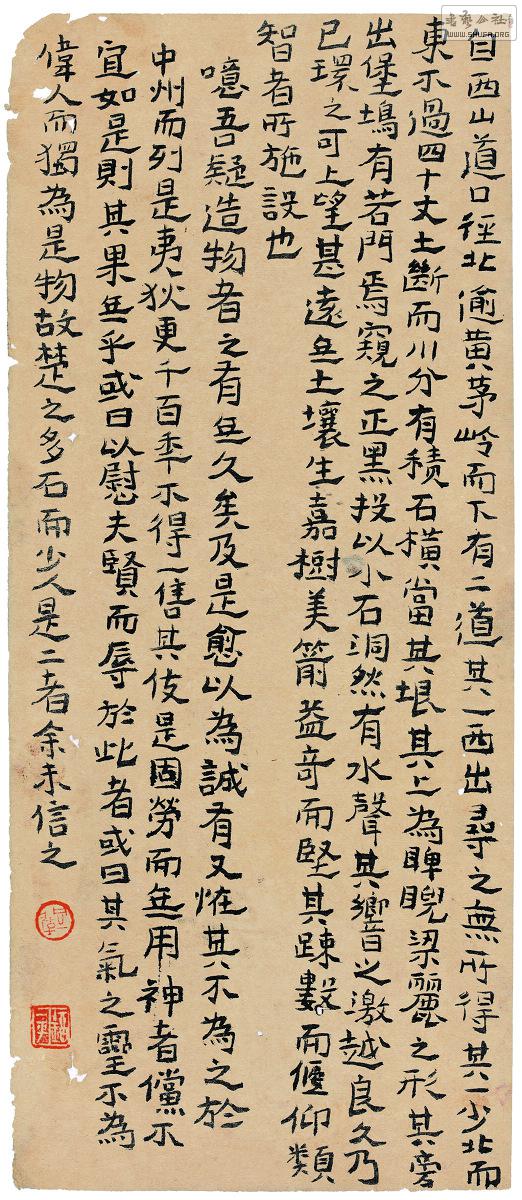 自西山道口徑北逾黃茅岭而下有二道其一西出尋之無所得其一少北而
東不過四十丈土斷而川分有積石橫當其垠其上為睥睨梁麗之形其旁
出堡塢有若門焉窺之正黑投以小石洞然有水聲其響之激越良久乃
已環之可上望甚遠无土壤生嘉樹美箭益奇而堅其踈數而偃仰類
智者所施設也
噫吾疑造物者之有无久矣及是愈以為誠有又怪其不為之於
中州而列是夷狄更千百年不得一售其伎是固勞而无用神者儻不
宜如是則其果无乎或曰以慰夫賢而辱於此者或曰其氣之靈不為
偉人而獨為是物故楚之多石而少人是二者余未信之
書藝公社
www.SHUFA.ORG